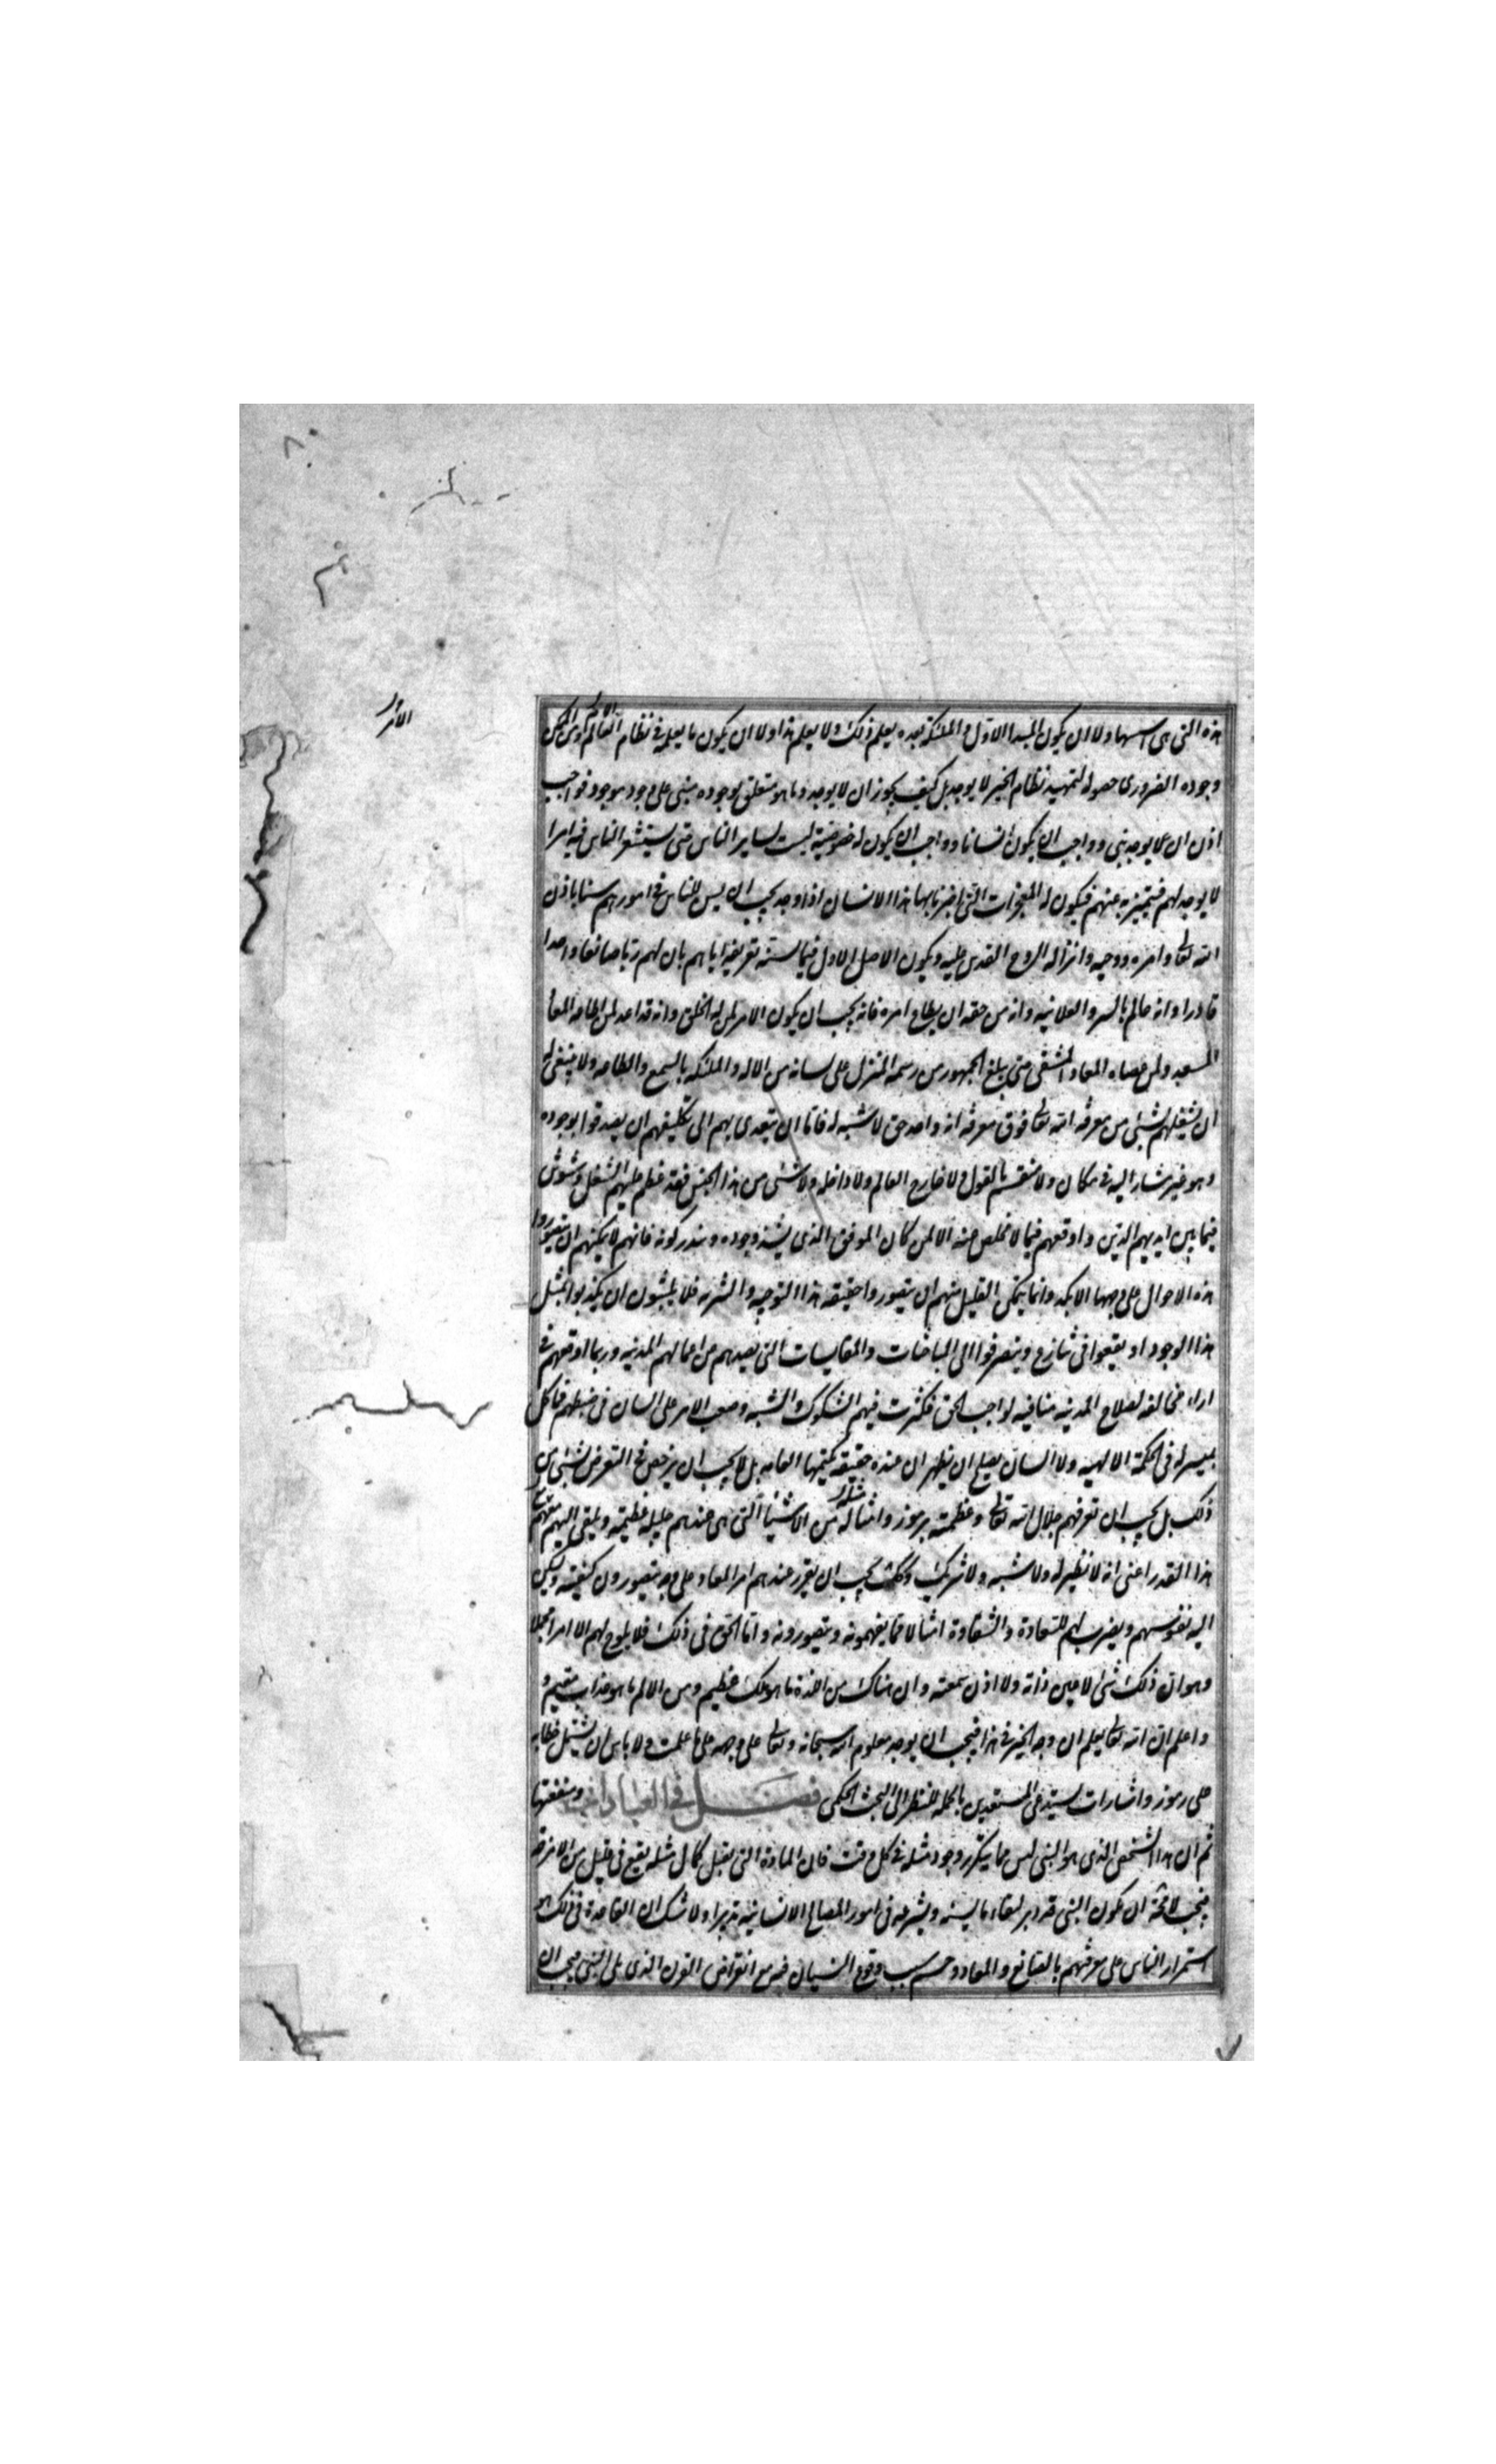 هذه التی هی اسها ولا ان یکون المبدا الاول و الملئکة بعده یعلم ذلک ولا یعلم هذا ولا ان یکون ما یعلمه فی نظام العالم الممکن
الامر
وجوده الضروری حصوله لتمهید نظام الخیر لا یوجد بل کیف یجوز ان لا یوجد وما هو متعلق بوجوده مبنی علی وجوده موجود فواجب
اذن ان یوجد نبی وواجب ان یکون انسانا وواجب ان یکون له خصوصیة لیست لسایر الناس حتی یستشعر الناس فیه امرا
لا یوجد لهم فیتمیز به عنهم فیکون له المعجزات التی اخبرنا بها هذا الانسان اذا وجد یجب ان یسن للناس فی امورهم سننا باذن
الله تعالی وامره ووحیه وانزاله الروح القدس علیه ویکون الاصل الاول فیما یسنه تعریفه ایاهم بان لهم ربا صانعا واحدا
قادرا وانه عالم بالسر والعلانیه وانه من حقه ان یطاع امره فانه یجب ان یکون الامر لمن له الخلق وانه قد اعد لمن اطاعه المعاد
المسعد ولمن عصاه المعاد المشقی حتی یتلقی الجمهور من رسمه المنزل علی لسانه من الاله والملئکه بالسمع والطاعه ولا ینبغی له
ان یشغلهم بشئ من معرفه الله تعالی فوق معرفه انه واحد حق لا شبیه له فاما ان یتعدی بهم الی تکلیفهم ان یصدقوا بوجوده
وهو غیر مشار الیه فی مکان ولا منقسم بالقول ولا خارج العالم ولا داخله ولا شئ من هذا الجنس فقد عظم علیهم الشغل وشوش
فیما بین ایدیهم الدین و اوقعهم فیما لا مخلص منه الا لمن کان الموفق الذی یشذ وجوده ویندر کونه فانهم لا یمکنهم ان یتصوروا
هذه الاحوال علی وجهها الا بکد وانما یمکن القلیل منهم ان یتصوروا حقیقه هذا التوحید والتنزیه فلا یلبثون ان یکذبوا بمثل
هذا الوجود او یقعوا فی تنازع وینصرفوا الی المباحثات والمقایسات التی تصدهم عن اعمالهم المدنیه وربما اوقعهم فی
اراء مخالفه لصلاح المدینه منافیه لواجب الحق فکثرت فیهم الشکوک والشبه وصعب الامر علی السان فی ضبطهم فما کل
بمیسر له فی الحکمة الالهیه ولا السان یصلح ان یظهر ان عنده حقیقه یکتمها العامه بل لا یجب ان یرخص فی التعرض بشئ من
ذلک بل یجب ان یعرفهم جلال الله تعالی وعظمته برموز وامثاله من الاشیاء التی هی عندهم جلیله عظیمه ویلقی الیهم معهم
هذا القدر اعنی انه لا نظیر له ولا شبیه ولا شریک وکذلک یجب ان یقرر عندهم امر المعاد علی وجه یتصورون کیفیته ویسکن
الیه نفوسهم ویضرب لهم للسعادة والشقاوة امثالا مما یفهمونه ویتصورونه واما الحق فی ذلک فلا یلوح لهم الا امرا مجملا
وهو ان ذلک شئ لا عین رأته ولا اذن سمعته وان هناک من اللذة ما هو ملک عظیم ومن الالم ما هو عذاب مقیم و
واعلم ان الله تعالی یعلم ان وجه الخیر فی هذا فیجب ان یوجد معلوم الله سبحانه وتعالی علی وجهه علی ما علمت ولا باس ان یشتمل خطابه
علی رموز واشارات یستدعی المستعدین بالجمله للنظر الی البحث الحکمی فصل فی العبادات ومنفعتها
ثم ان هذا الشخص الذی هو النبی لیس مما یتکرر وجود مثله فی کل وقت فان المادة التی تقبل کمال مثله یقع فی قلیل من الامزجه
فیجب لا محة ان یکون النبی قد دبر لبقاء ما یسنه ویشرعه فی امور المصالح الانسانیه تدبیرا ولا شک ان القاعدة فی ذلک هو
استمرار الناس علی معرفتهم بالصانع والمعاد وحسم سبب وقوع النسیان فیه مع انقراض القرن الذی یلی النبی فیجب ان